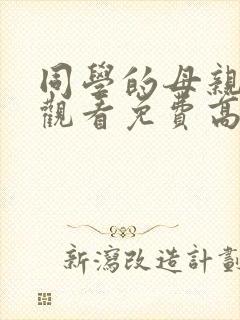 同學的母親
觀看免費高
新瀉改造計劃